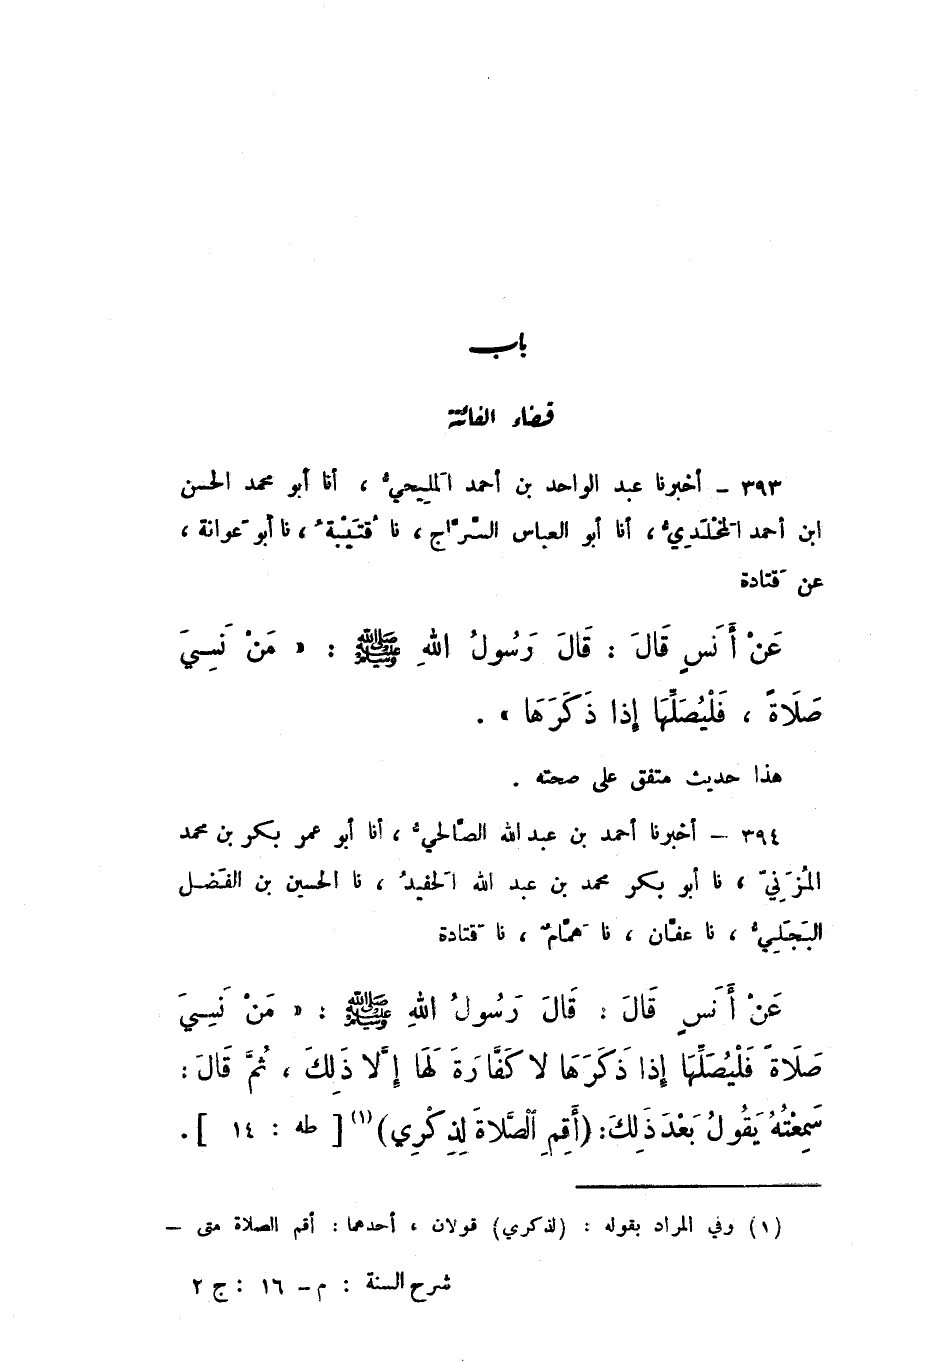 باب
قضاء الفائتة
٣٩٣ – أخبرنا عبد الواحد بن أحمد المَلِيحيُّ ، أنا أبو محمد الحسن
ابن أحمد المَخْلَدِيُّ ، أنا أبو العباس السَّرَّاج ، نا قُتَيْبةُ ، نا أبو عَوانة ،
عن قَتادة
عَنْ أَنَسٍ قَالَ : قَالَ رَسُولُ اللهِ ﷺ : « مَنْ نَسِيَ
صَلَاةً ، فَلْيُصَلِّهَا إِذا ذَكَرَهَا » .
هذا حديث متفق على صحته .
٣٩٤ – أخبرنا أحمد بن عبد الله الصَّالحيُّ ، أنا أبو عمر بكر بن محمد
المُزَنِيّ ، نا أبو بكر محمد بن عبد الله الحَفيدُ ، نا الحسين بن الفَضل
البَجَلِيُّ ، نا عفَّان ، نا هَمَّامٌ ، نا قَتادة
عَنْ أَنَسٍ قَالَ : قَالَ رَسُولُ اللهِ ﷺ : « مَنْ نَسِيَ
صَلَاةً فَلْيُصَلِّهَا إِذا ذَكَرَهَا لا كَفَّارَةَ لَهَا إِلَّا ذَلِكَ ، ثُمَّ قَالَ :
سَمِعْتُهُ يَقُولُ بَعْدَ ذَلِكَ : (أَقِمِ ٱلصَّلاةَ لِذِكْرِي)(١) [ طه : ١٤ ] .
(١) وفي المراد بقوله : (لذكري) قولان ، أحدهما : أقم الصلاة متى –
شرح السنة : م – ١٦ : ج ٢